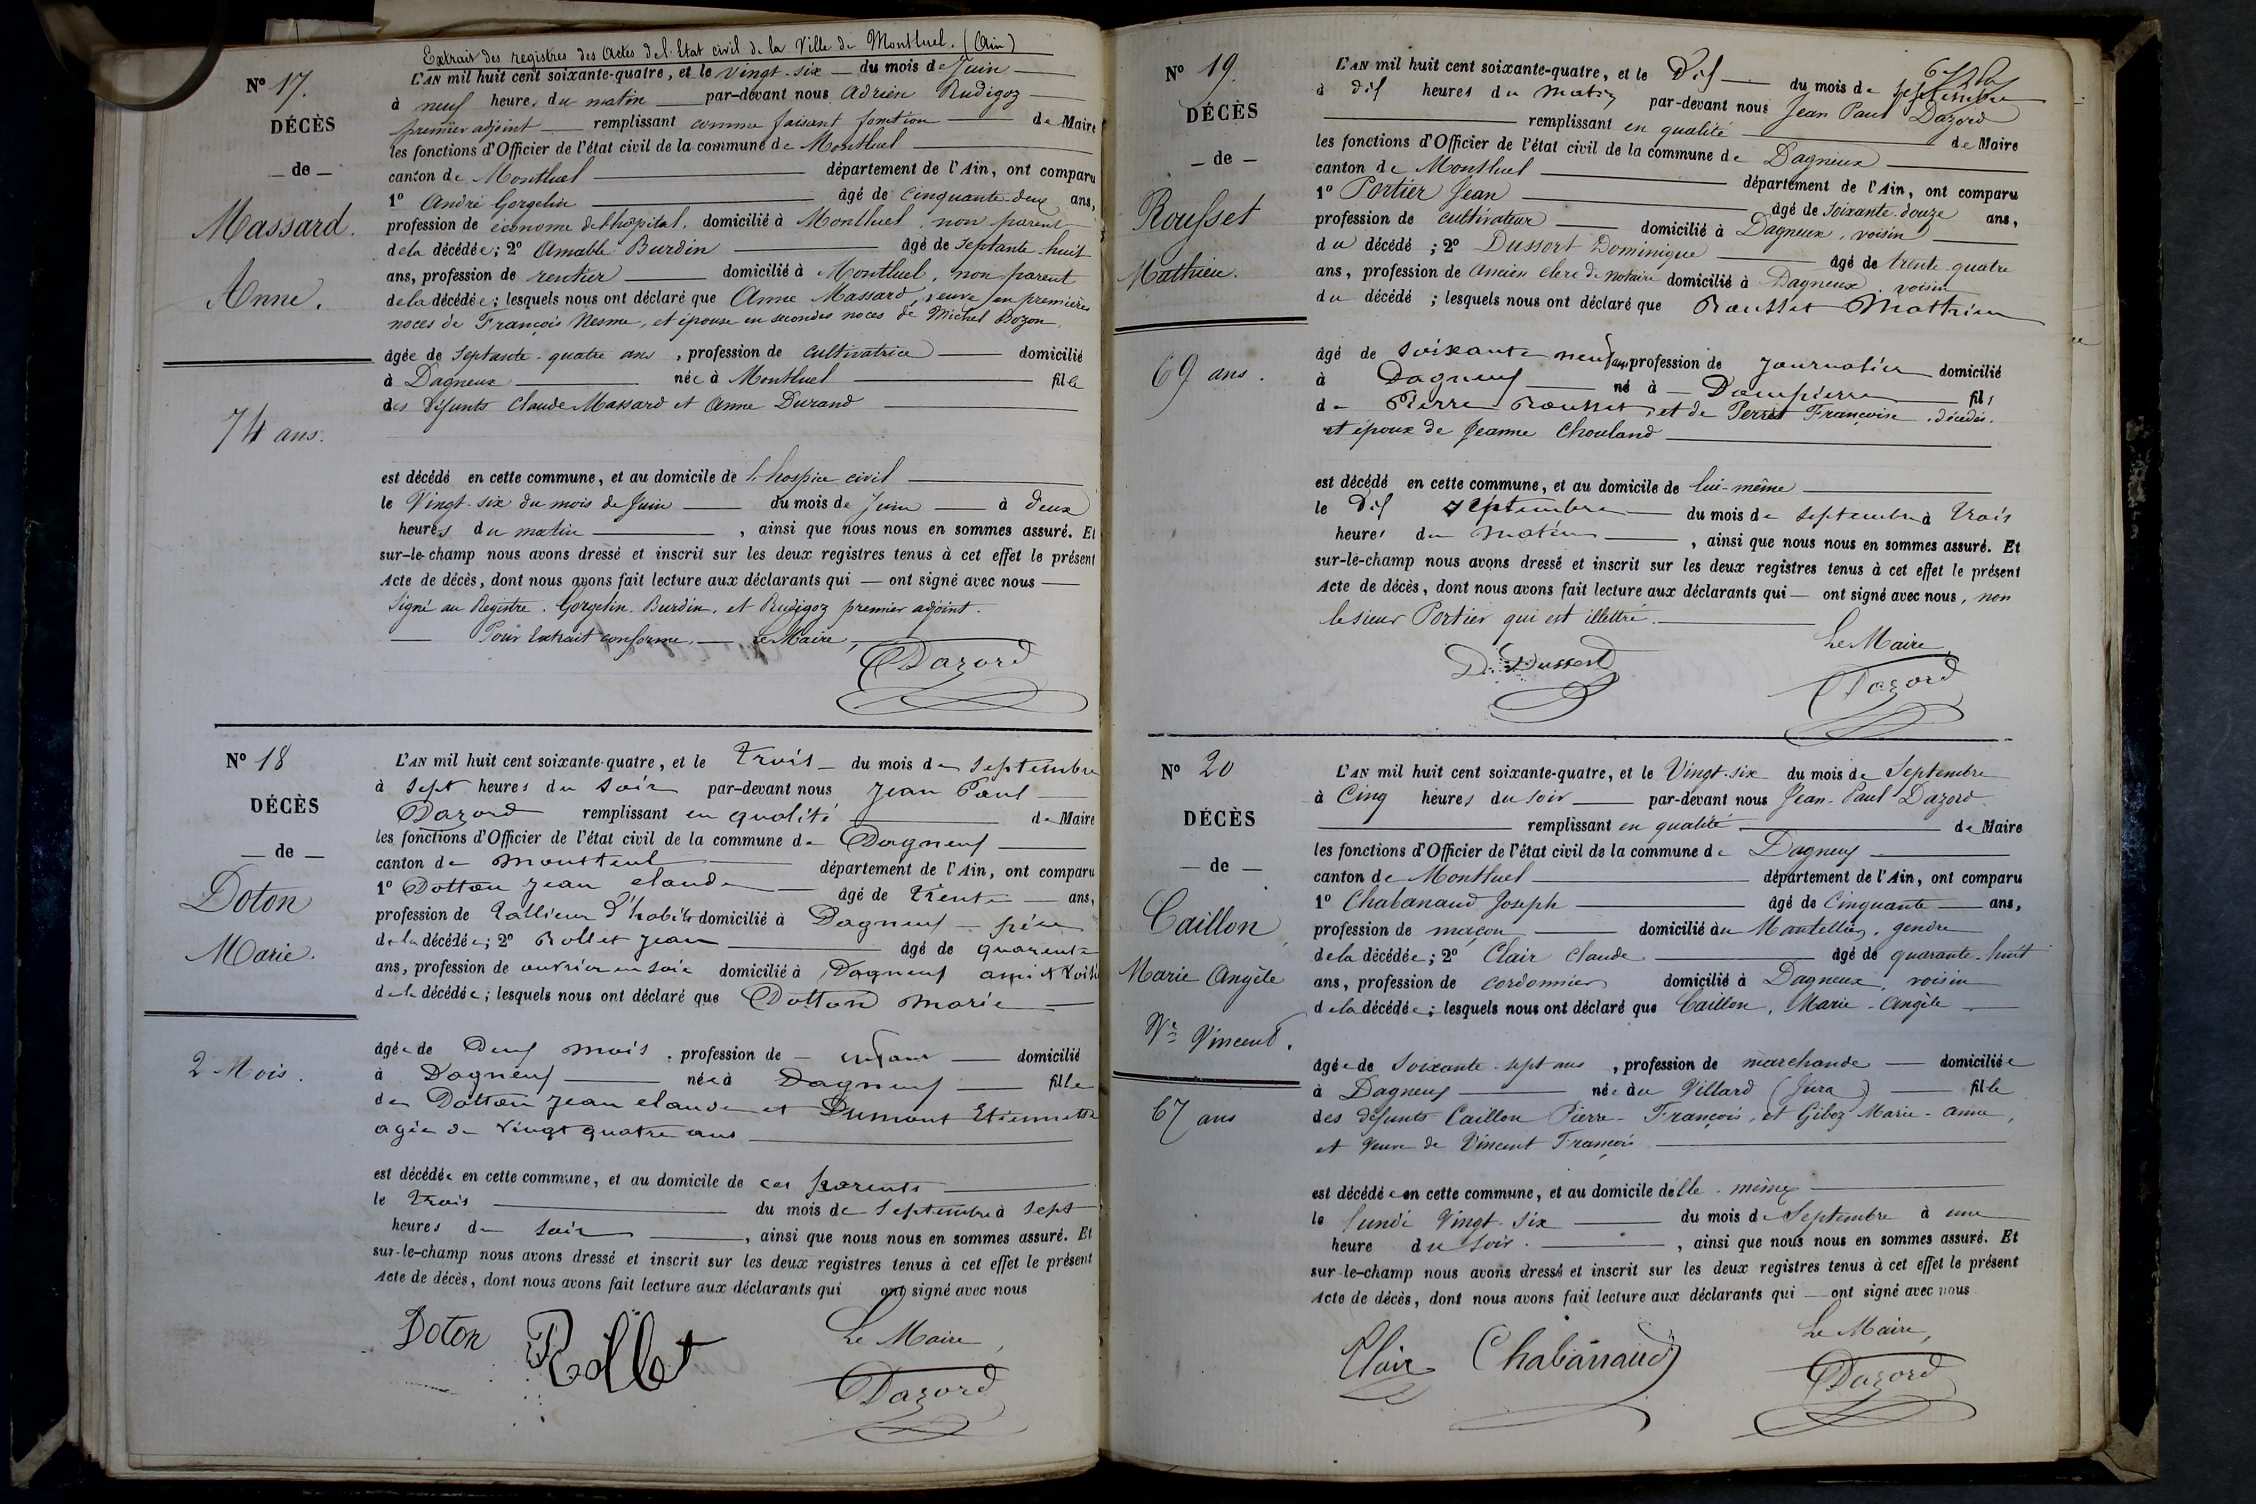 Extrait des registres des Actes de l'Etat civil de la Ville de Montluel. (Ain)
N° 17.
DÉCÈS
— de —
Massard.
Anne.
74 ans.
L'AN mil huit cent soixante-quatre, et le vingt-six — du mois de Juin —
à neuf heures du matin — par-devant nous Adrien Rudigoz —
premier adjoint — remplissant comme faisant fonction — de Maire
les fonctions d'Officier de l'état civil de la commune de Montluel —
canton de Montluel — département de l'Ain, ont comparu
1° André Gorgelin — âgé de cinquante-deux ans,
profession de économe de l'hôpital, domicilié à Montluel, non parent
de la décédée; 2° Amable Burdin — âgé de septante-huit
ans, profession de rentier — domicilié à Montluel, non parent
de la décédée; lesquels nous ont déclaré que Anne Massard, veuve en premières
noces de François Nesme, et épouse en secondes noces de Michel Bozon,
âgée de septante-quatre ans, profession de cultivatrice — domicilié
à Dagneux — née à Montluel — fille
des défunts Claude Massard et Anne Durand —
est décédé en cette commune, et au domicile de l'hospice civil —
le Vingt-six du mois de Juin — du mois de Juin — à deux
heures du matin —, ainsi que nous nous en sommes assuré. Et
sur-le-champ nous avons dressé et inscrit sur les deux registres tenus à cet effet le présent
Acte de décès, dont nous avons fait lecture aux déclarants qui — ont signé avec nous —
Signé au Registre. Gorgelin. Burdin, et Rudigoz premier adjoint.
— Pour Extrait conforme. — Le Maire, —
Dazord
N° 18
DÉCÈS
— de —
Doton
Marie.
2 Mois.
L'AN mil huit cent soixante-quatre, et le trois — du mois de septembre
à sept heures du soir par-devant nous Jean Paul —
Dazord remplissant en qualité — de Maire
les fonctions d'Officier de l'état civil de la commune de Dagneux —
canton de Montluel — département de l'Ain, ont comparu
1° Dotton Jean Claude — âgé de trente — ans,
profession de tallieur d'habits domicilié à Dagneux — père
de la décédée; 2° Rollet Jean — âgé de quarente
ans, profession de ouvrier en soie domicilié à Dagneux ami et voisin
de la décédée; lesquels nous ont déclaré que Dotton Marie —
âgée de Deux mois, profession de — enfant — domicilié
à Dagneux — née à Dagneux — fille
de Dotton Jean Claude et Dumont Etiennette
agée de vingt quatre ans —
est décédée en cette commune, et au domicile de ces parents —
le trois — du mois de septembre à sept
heures du soir —, ainsi que nous nous en sommes assuré. Et
sur-le-champ nous avons dressé et inscrit sur les deux registres tenus à cet effet le présent
Acte de décès, dont nous avons fait lecture aux déclarants qui ont signé avec nous
Doton Rollet Le Maire,
Dazord
N° 19.
DÉCÈS
— de —
Rousset
Mathieu.
69 ans.
L'AN mil huit cent soixante-quatre, et le Dix — du mois de septembre
à dix heures du matin par-devant nous Jean Paul Dazord
— remplissant en qualité — de Maire
les fonctions d'Officier de l'état civil de la commune de Dagneux —
canton de Montluel — département de l'Ain, ont comparu
1° Portier Jean — âgé de soixante-douze ans,
profession de cultivateur — domicilié à Dagneux, voisin —
du décédé; 2° Dussort Dominique — âgé de trente-quatre
ans, profession de ancien clerc de notaire domicilié à Dagneux voisin
du décédé; lesquels nous ont déclaré que Rousset Mathieu
âgé de soixante neuf ans, profession de Journalier domicilié
à Dagneux — né à — Dompierre — fils
de Pierre Rousset, et de Perret Françoise, décédés.
et époux de Jeanne Chouland —
est décédé en cette commune, et au domicile de lui-même —
le Dix septembre — du mois de septembre à trois
heures du matin —, ainsi que nous nous en sommes assuré. Et
sur-le-champ nous avons dressé et inscrit sur les deux registres tenus à cet effet le présent
Acte de décès, dont nous avons fait lecture aux déclarants qui — ont signé avec nous, non
le sieur Portier qui est illettré. —
Le Maire,
D. Dussort Dazord
N° 20
DÉCÈS
— de —
Caillon,
Marie Angèle
Ve Vincent.
67 ans
L'AN mil huit cent soixante-quatre, et le Vingt-six du mois de Septembre
à Cinq heures du soir — par-devant nous Jean-Paul Dazord
— remplissant en qualité — de Maire
les fonctions d'Officier de l'état civil de la commune de Dagneux —
canton de Montluel — département de l'Ain, ont comparu
1° Chabanaud Joseph — âgé de Cinquante — ans,
profession de maçon — domicilié au Montellier, gendre
de la décédée; 2° Clair Claude — âgé de quarante-huit
ans, profession de cordonnier domicilié à Dagneux, voisin
de la décédée; lesquels nous ont déclaré que Caillon, Marie-Angèle —
âgée de soixante-sept ans, profession de marchande — domiciliée
à Dagneux — née au Villard (Jura) — fille
des défunts Caillon Pierre-François, et Giboz Marie-anne,
et veuve de Vincent François —
est décédée en cette commune, et au domicile d'elle-même —
le lundi Vingt-six — du mois de Septembre à une
heure du soir. —, ainsi que nous nous en sommes assuré. Et
sur-le-champ nous avons dressé et inscrit sur les deux registres tenus à cet effet le présent
Acte de décès, dont nous avons fait lecture aux déclarants qui — ont signé avec nous
Le Maire,
Clair Chabanaud Dazord